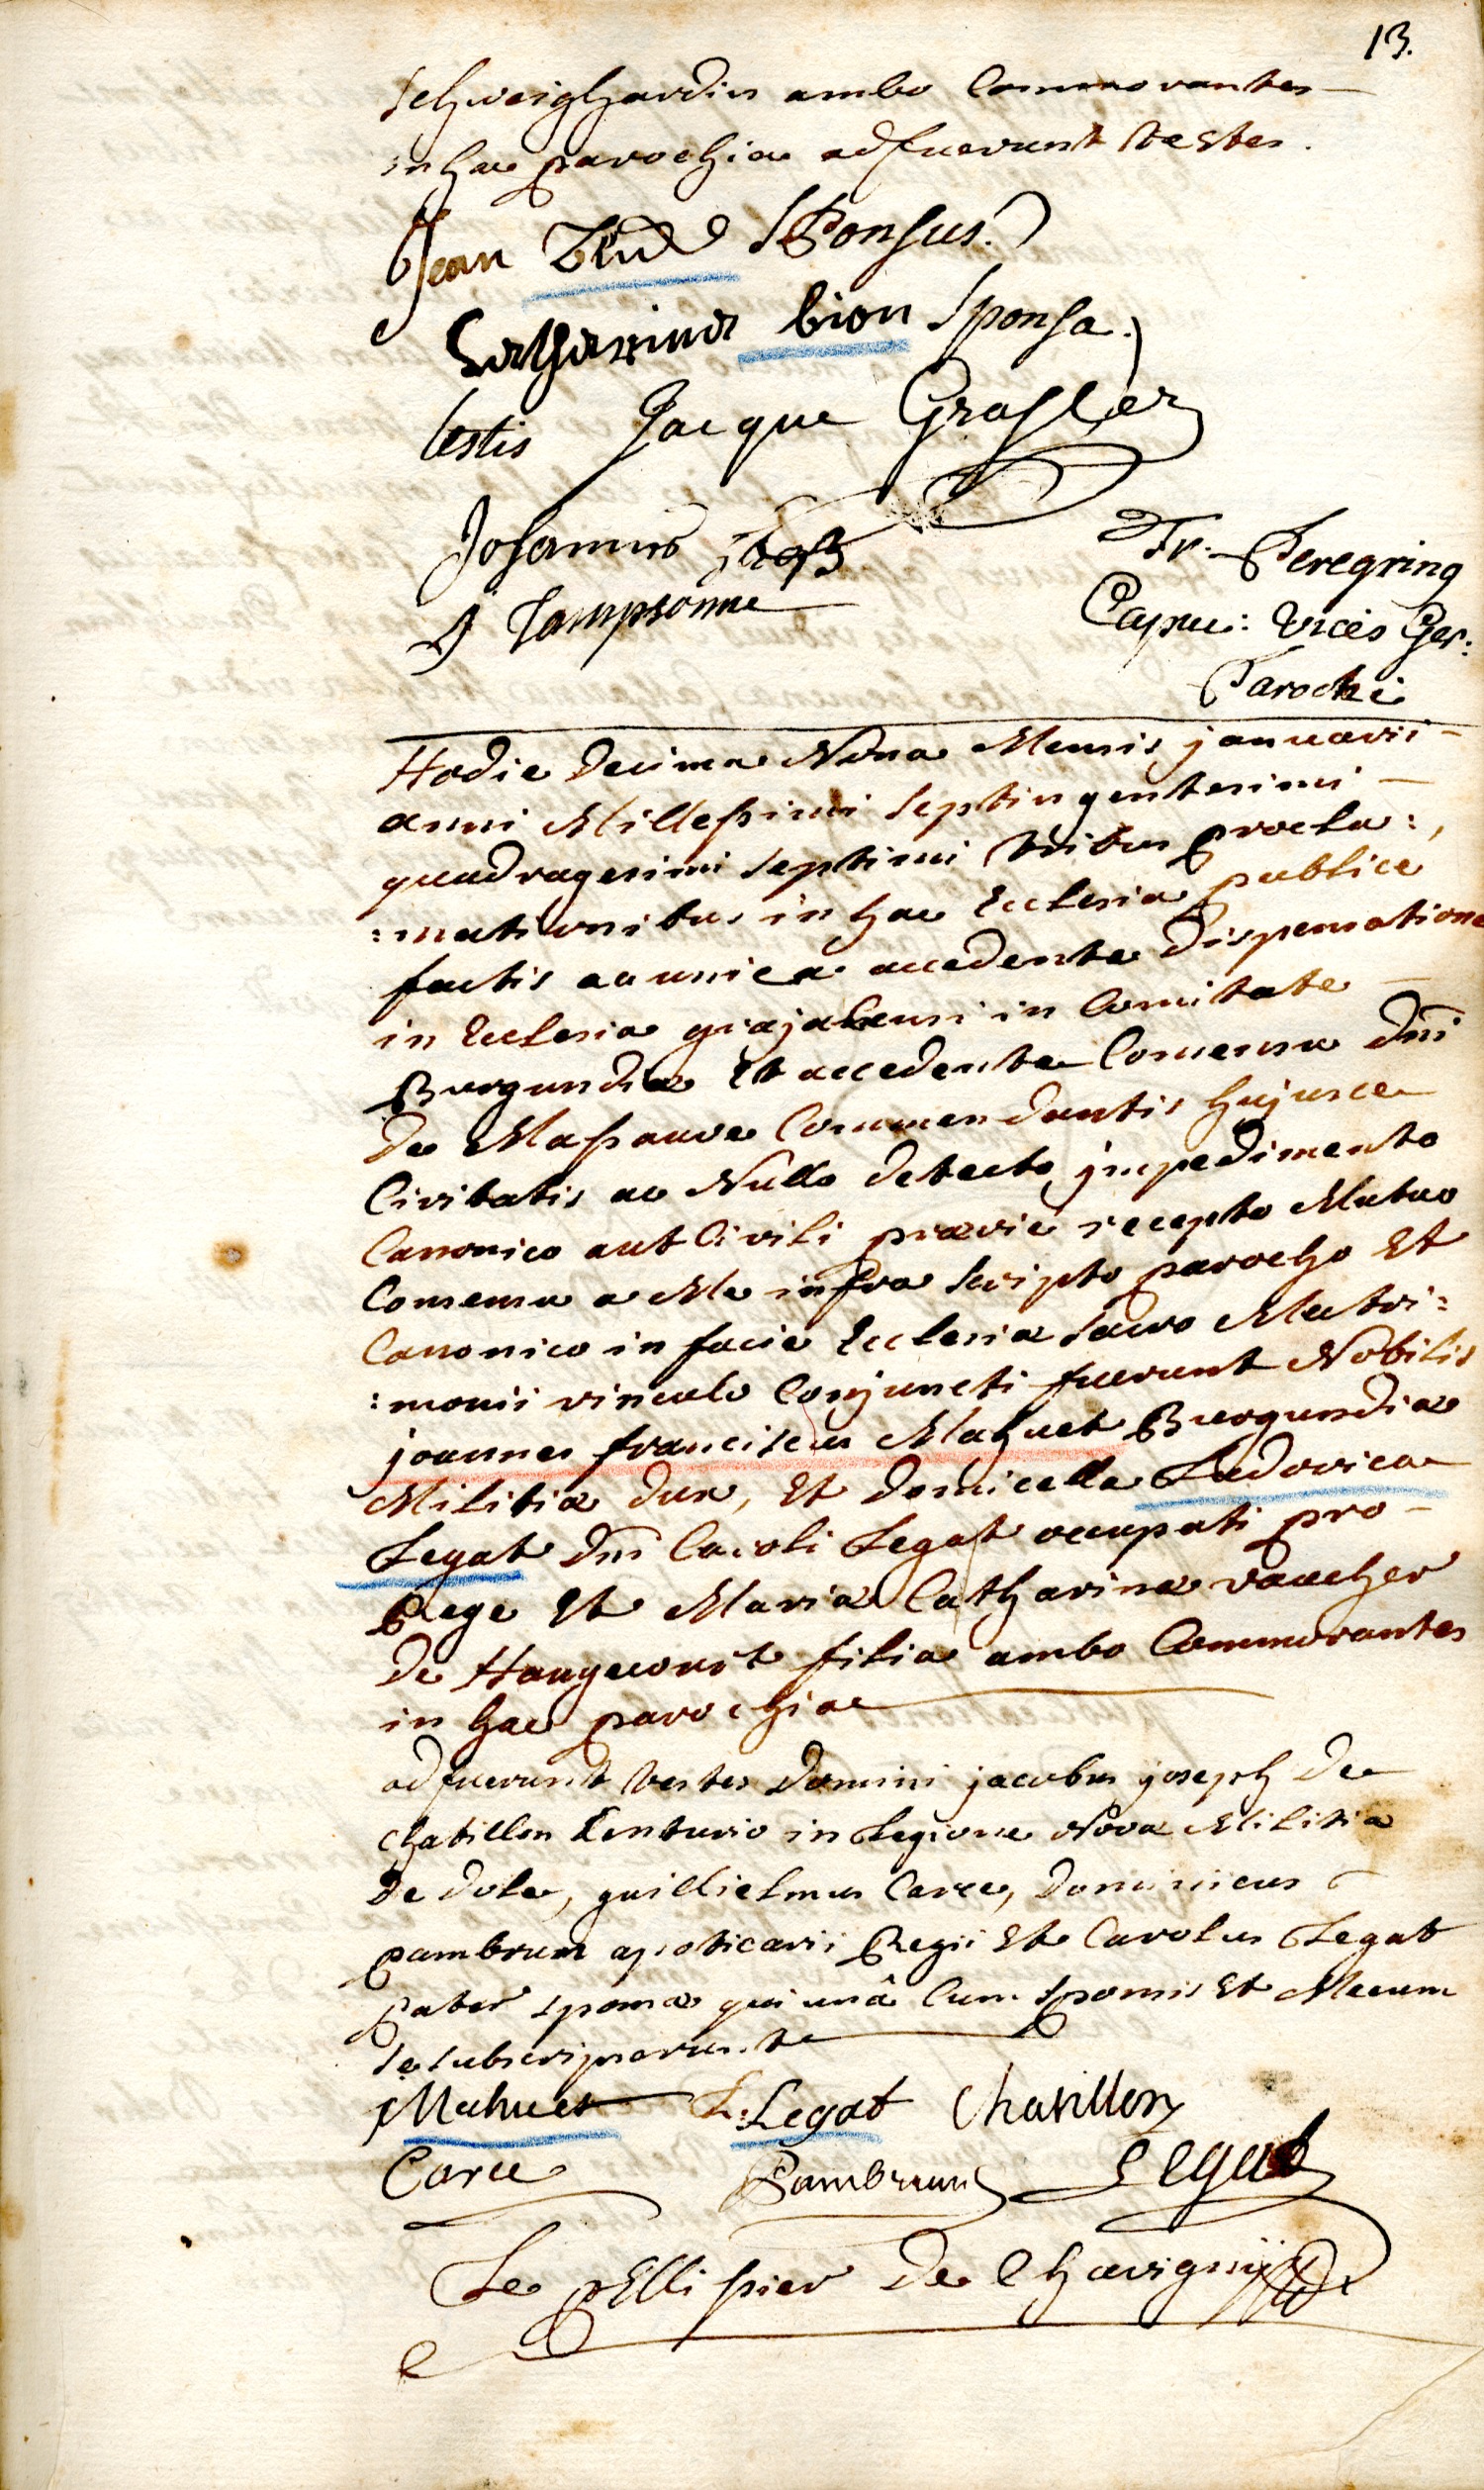 13.
Schweighardin ambo Commorantes
in hac parochia adfuerunt testes.
Jean SPonsus.
Catharina bion Sponsa.
testis Jacque Grasler
Johannes
J Sampsonne
Fr. Peregring
Capuc: vices Ger:
Parochi
Hodie decima Nona Mensis januarii
anni Millessimi Septingentesimi
quadragesimi Septimi tribus procla:
:mationibus in hac Ecclesia publice
factis ac unica accedente dispensatione
in Ecclesia in Comitate
Burgundiæ Et accedente Consensu dni
de Massauve Commendantis hujusce
Civitatis ac Nullo detecto impedimento
Canonico aut Civili prævie recepto Mutuo
Consensu a Me infra scripto parocho Et
Canonico in facie Ecclesiæ sacro Matri:
:monii vinculo Conjuncti fuerunt Nobilis
joannes franciscus Mahuet Burgundiæ
Militiæ dux, Et domicella Ludovica
Legat dni Caroli Legat occupati pro
Rege Et Mariæ Catharinæ vaucher
de Haugecourt filia ambo Commorantes
in hac parochia
adfuerunt testes domini jacobus joseph de
chatillon Centurio in Legione Novæ Militiæ
de dole, guillielmus Caree, dominicus
pambrun apoticarii Regii Et Carolus Legat
pater sponsæ qui unâ Cum sponsis Et Mecum
se subscripserunt
Mahuet L: Legat Chatillon
Caree Pambrun Legat
Le pEllissier de Chavigny